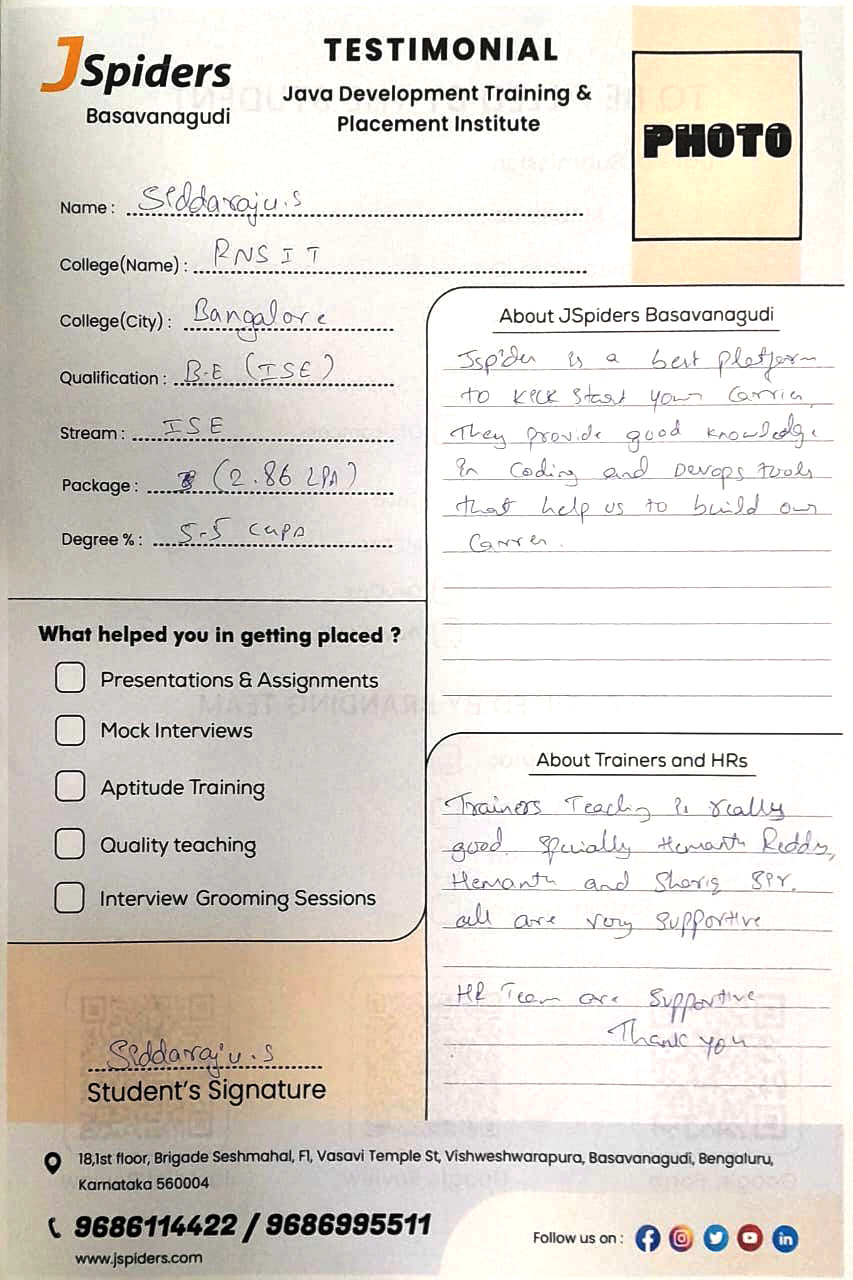 JSpiders
Basavanagudi
TESTIMONIAL
Java Development Training &
Placement Institute
PHOTO
Name : Siddaraju.S
College(Name) : RNSIT
College(City) : Bangalore
Qualification : B.E (ISE)
Stream : ISE
Package : (2.86 LPA)
Degree % : 5.5 CGPA
What helped you in getting placed ?
Presentations & Assignments
Mock Interviews
Aptitude Training
Quality teaching
Interview Grooming Sessions
Siddaraju.S
Student's Signature
About JSpiders Basavanagudi
Jspider is a best platform
to kick start your Carrier,
They provide good knowledge
in Coding and Devops tools
that help us to build our
Carrier.
About Trainers and HRs
Trainers Teaching is really
good spcially Hemanth Reddy,
Hemanth and Shariq Sir.
all are very supportive
HR Team are supportive
Thank you
18,1st floor, Brigade Seshmahal, F1, Vasavi Temple St, Vishweshwarapura, Basavanagudi, Bengaluru,
Karnataka 560004
9686114422 / 9686995511
www.jspiders.com
Follow us on :